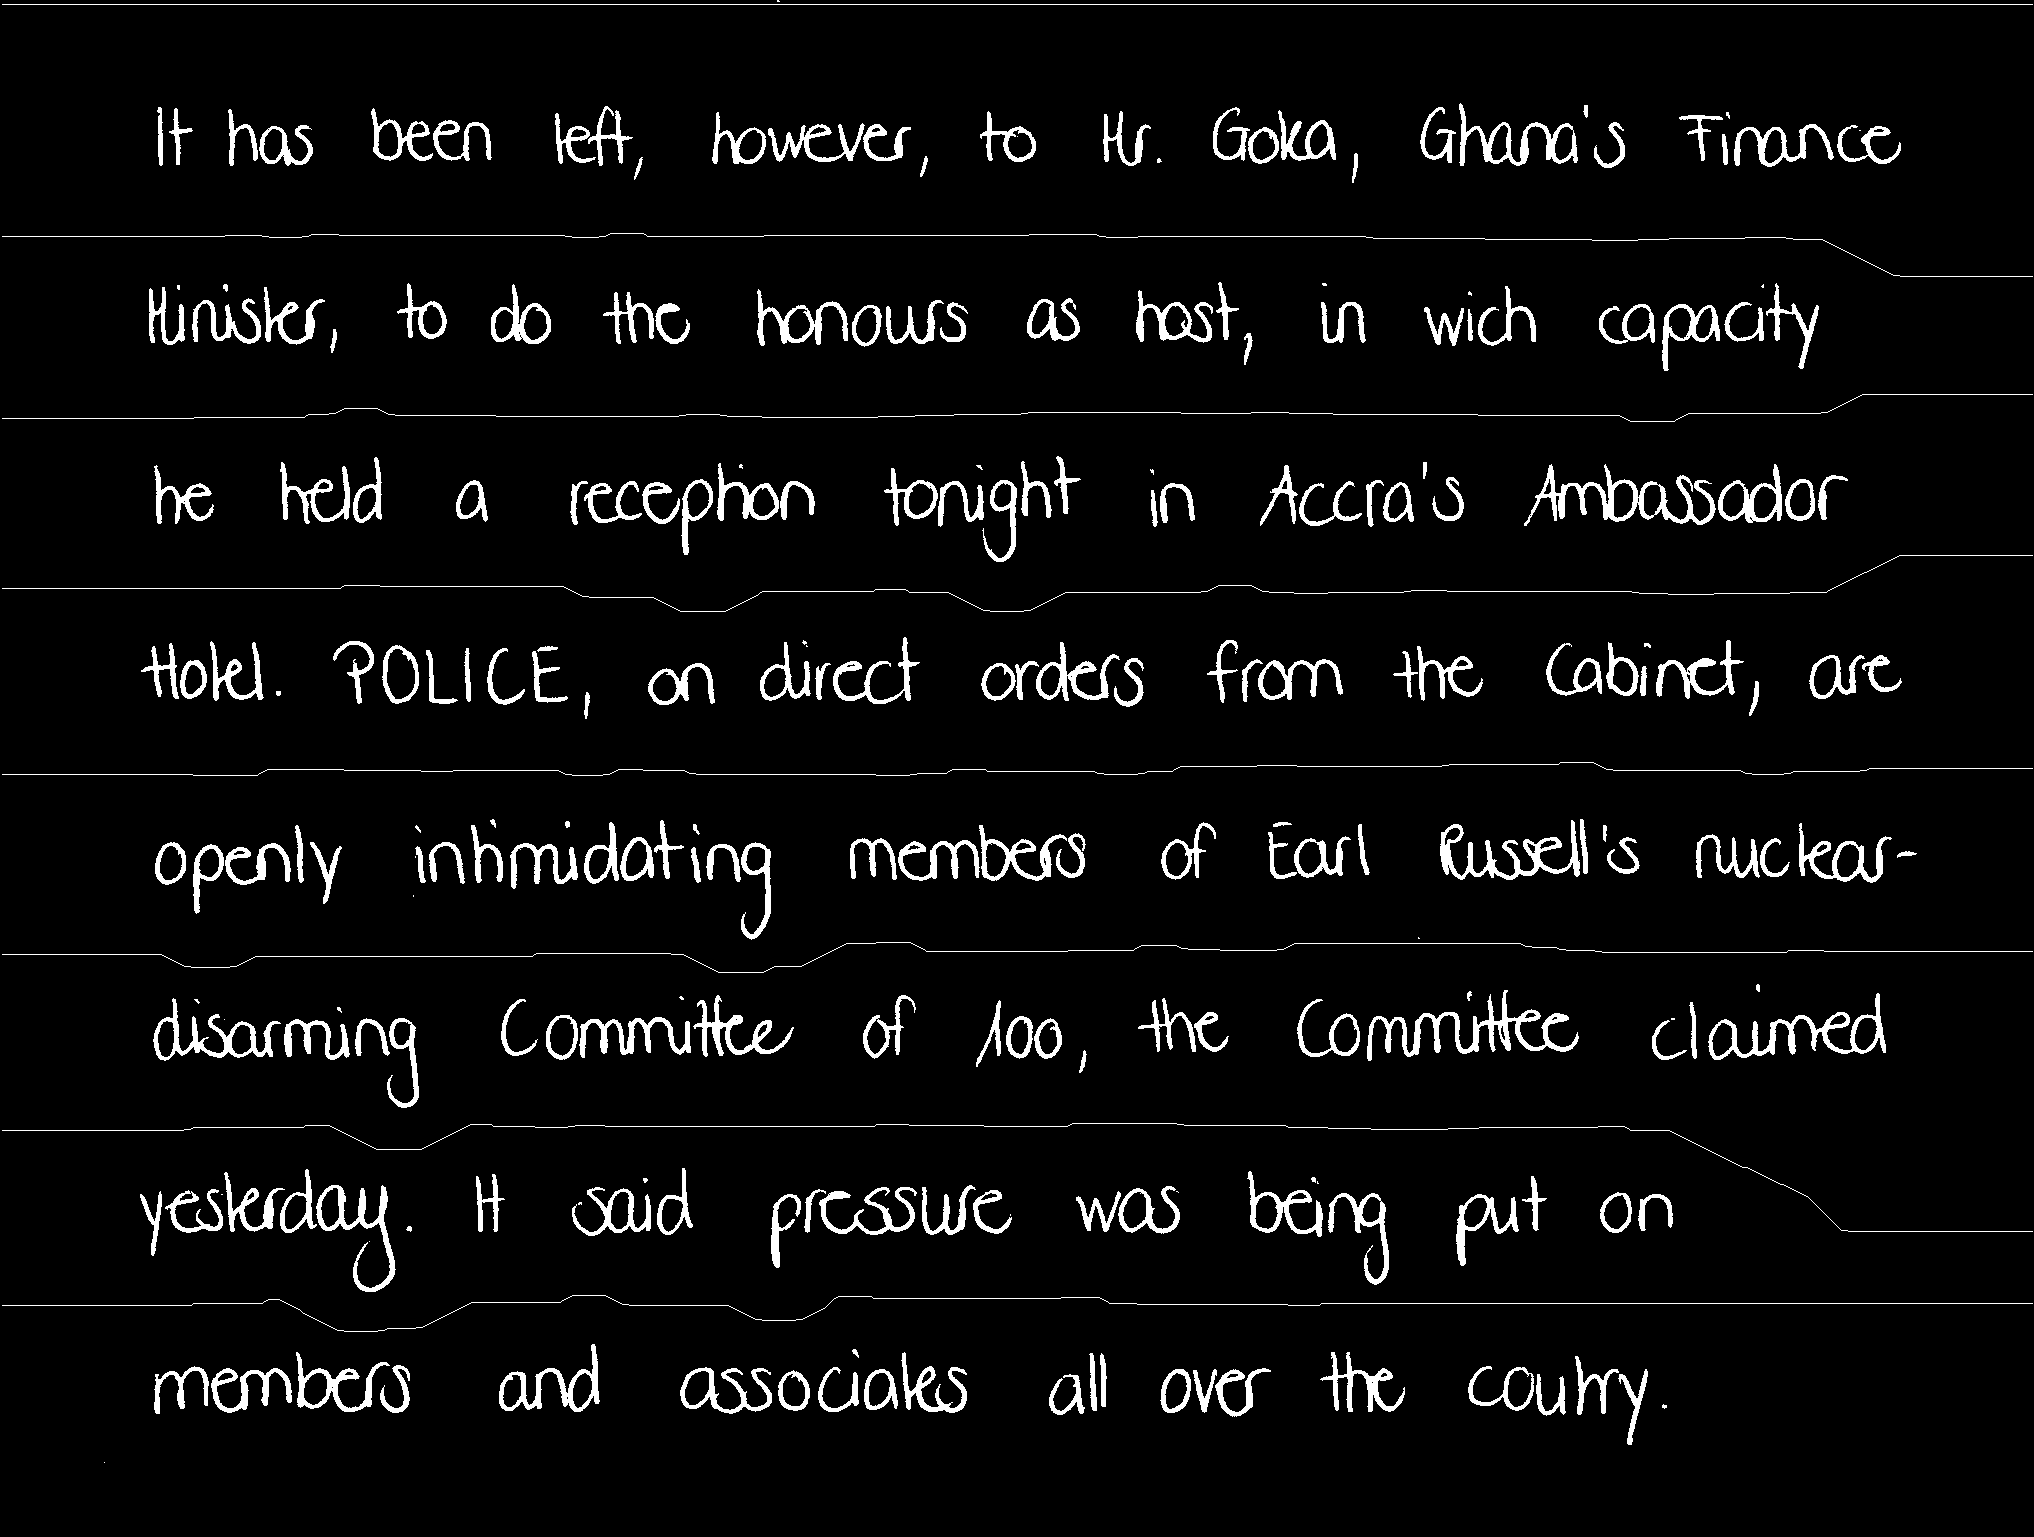 It has been left, however, to Mr. Goka, Ghana's Finance
Minister, to do the honours as host, in wich capacity
he held a reception tonight in Accra's Ambassador
Hotel. POLICE, on direct orders from the Cabinet, are
openly intimidating members of Earl Russell's nuclear-
disarming Committee of 100, the Committee claimed
yesterday. It said pressure was being put on
members and associates all over the coutry.